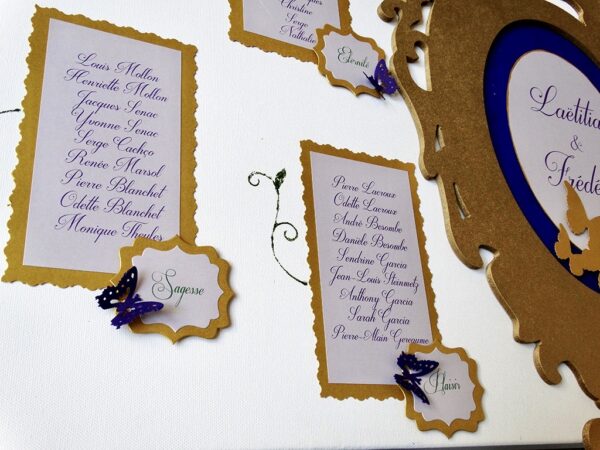 Christine
Serge
Nathalie
Eternité
Louis Mollon
Henriette Mollon
Jacques Senac
Yvonne Senac
Serge Cachço
Renée Marsol
Pierre Blanchet
Odette Blanchet
Monique Theules
Sagesse
Pierre Lacroux
Odette Lacroux
André Besombe
Danièle Besombe
Sandrine Garcia
Jean-Louis Stanmetz
Anthony Garcia
Sarah Garcia
Pierre-Alain Gereaume
Plaisir
Laëtitia
&
Frédé